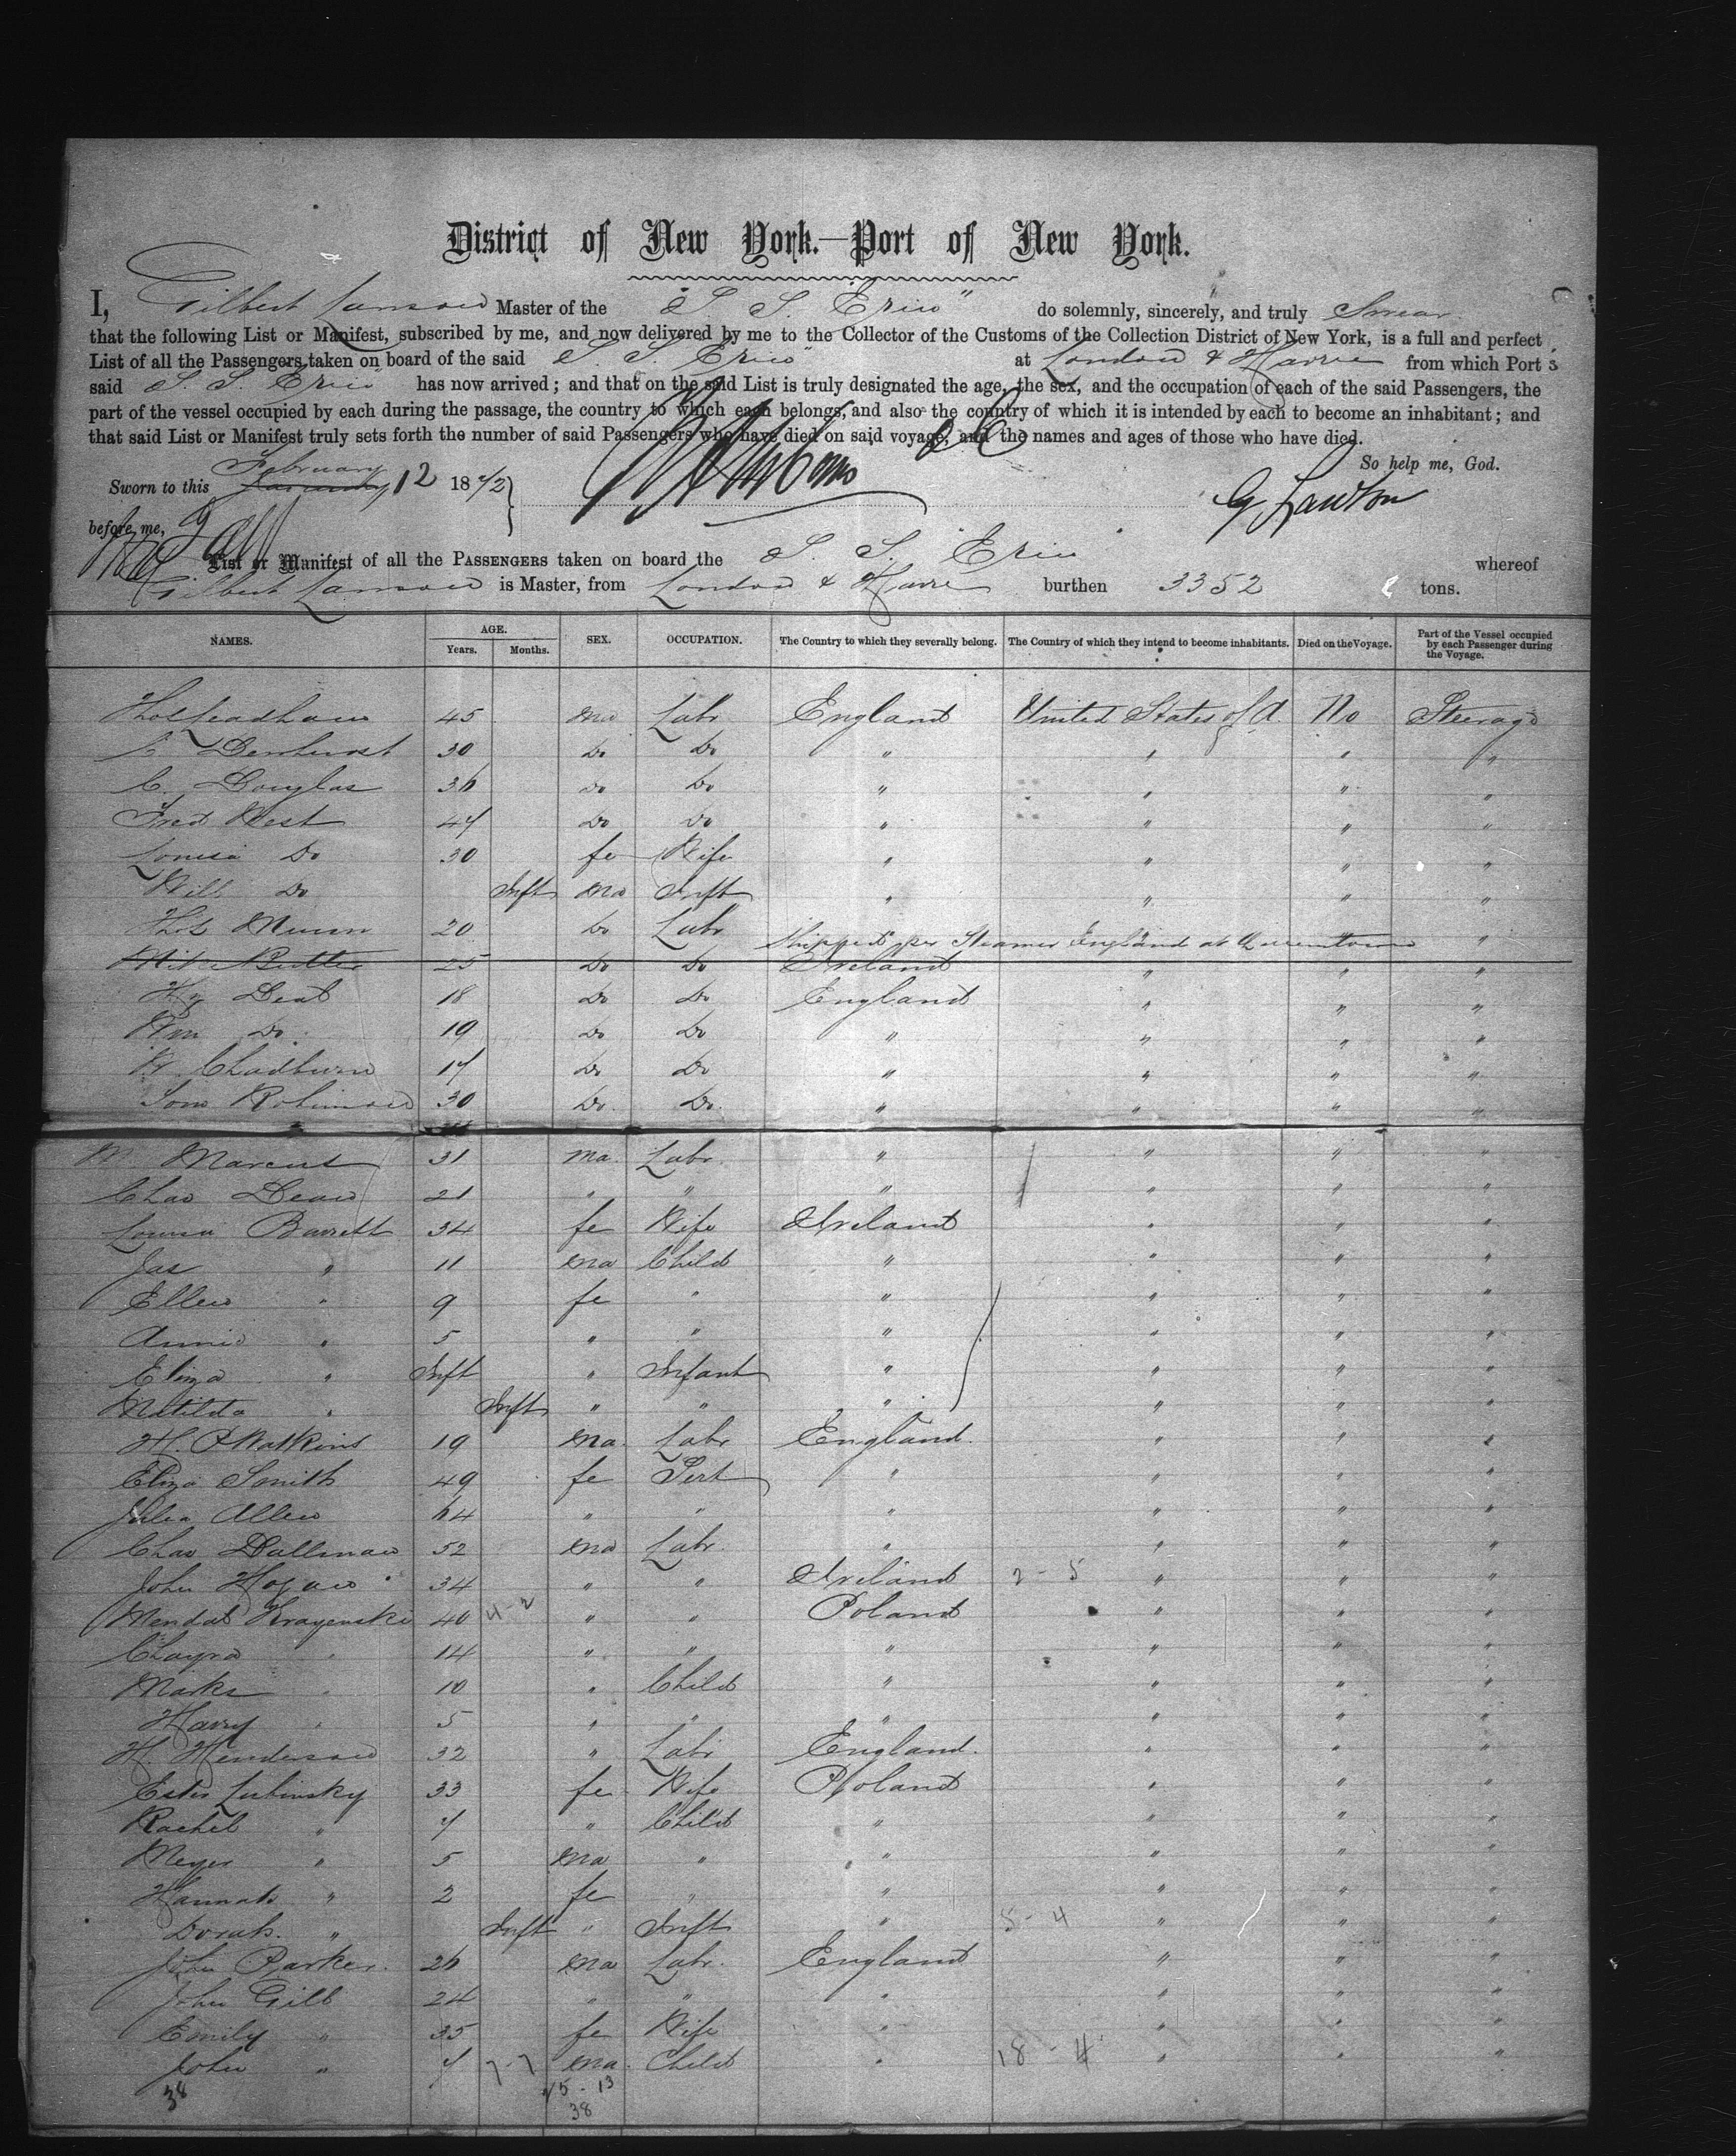 District of New York.—Port of New York.
I, Gilbert Lawson Master of the "S. S. Erin" do solemnly, sincerely, and truly Swear
that the following List or Manifest, subscribed by me, and now delivered by me to the Collector of the Customs of the Collection District of New York, is a full and perfect
List of all the Passengers taken on board of the said S. S. Erin" at London & Havre from which Port s
said S. S. Erin has now arrived; and that on the said List is truly designated the age, the sex, and the occupation of each of the said Passengers, the
part of the vessel occupied by each during the passage, the country to which each belongs, and also the country of which it is intended by each to become an inhabitant; and
that said List or Manifest truly sets forth the number of said Passengers who have died on said voyage, and the names and ages of those who have died.
So help me, God.
February
Sworn to this January 12 1872
before me, G Lawson
List or Manifest of all the PASSENGERS taken on board the S. S. Erin whereof
Gilbert Lawson is Master, from London & Havre burthen 3352 tons.
NAMES. AGE. Years. Months. SEX. OCCUPATION. The Country to which they severally belong. The Country of which they intend to become inhabitants. Died on the Voyage. Part of the Vessel occupied by each Passenger during the Voyage.
Thos 45 ma Labr England United States of A. No Steerage
30 Do Do " " " "
C. Douglas 36 Do Do " " " "
Fred West 47 Do Do " " " "
Louisa Do 30 fe Wife " " " "
Will Do Inft ma Inft " " " "
Thos Munn 20 Do Labr " " " "
Shipped per Steamer England at Queenstown
Mike Butler 25 Do Do Ireland " " "
Hy Deal 18 Do Do England " " "
Wm Do 19 Do Do " " " "
W. Chadburn 17 Do Do " " " "
Tom Robinson 30 Do. Do. " " " "
M. Marcus 31 ma. Labr " " " "
Chas Dean 21 " " " " " "
Louisa Barrett 34 fe Wife Ireland " " "
Jas " 11 ma Child " " " "
Ellen " 9 fe " " " " "
Annie " 5 " " " " " "
Eliza " Inft " Infant " " " "
Matilda " Inft " " " " " "
H. P Watkins 19 ma. Labr England. " " "
Eliza Smith 49 fe " " " "
Julia Allen 64 " " " " " "
Chas Dallman 52 ma Labr. " " " "
John Hogan 34 " " Ireland 2 - 5 " " "
Mendal Krayenski 40 4-2 " " Poland " " "
Chayra " 14 " " " " " "
Marks " 10 " Child " " " "
Harry " 5 " " " " " "
H. Henderson 32 " Labr England. " " "
Ester Lubinsky 33 fe Wife Poland " " "
Rachel " 7 " Child " " " "
Meyer " 5 ma " " " " "
Hannah " 2 fe " " " " "
Dorah. " Inft " Inft " 5 - 4 " " "
John Parker. 26 ma Labr. England " " "
John Gill 24 " " " " " "
Emily " 35 fe Wife " " " "
John " 7 7-7 ma. Child " 18 - 4 " " "
38 - 13
38